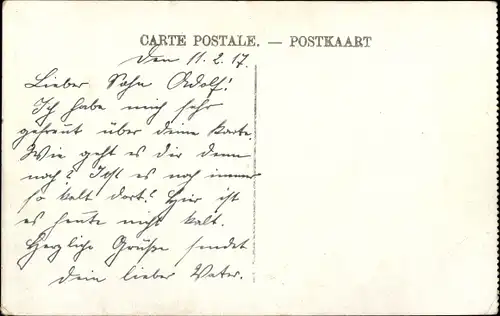 CARTE POSTALE. — POSTKAART
Den 11.2.17.
Lieber Sohn Adolf!
Ich habe mich sehr
gefreut über deine Karte.
Wie geht es dir denn
noch? Ist es noch immer
so kalt dort? Hier ist
es heute nicht kalt.
Herzliche Grüße sendet
dein lieber Vater.